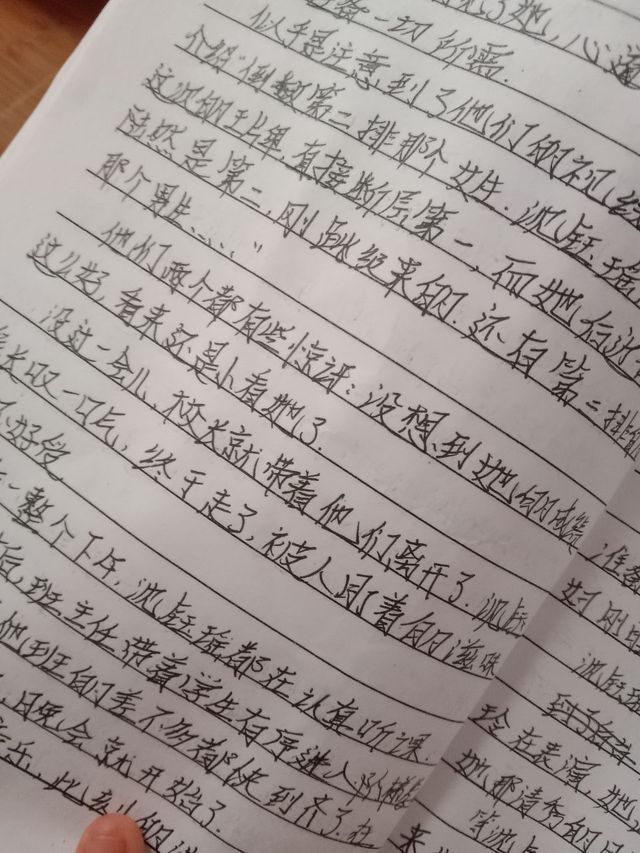 了她，心
备一切所需.
似乎是注意到了他们的视线
介绍"倒数第二排那个女生.沈钰瑶
这次的王牌,直接断层第一,而她后
陆然是第二,刚跳级来的.还有第二排
那个男生......"
他们两个都有些惊讶:没想到她的成绩
这么好,看来还是小看她了.
没过一会儿,校长就带着他们离开了.沈钰
长叹一口气,终于走了,被人盯着的滋味
不好受
一整个下午,沈钰瑶都在认真听课.
后,班主任带着学生有序进入阶梯
他班的差不多都快到齐了.
,晚会就开始了
乐,此刻的
准备
好刚
沈钰
在表演,她
她那清秀的
来
沈